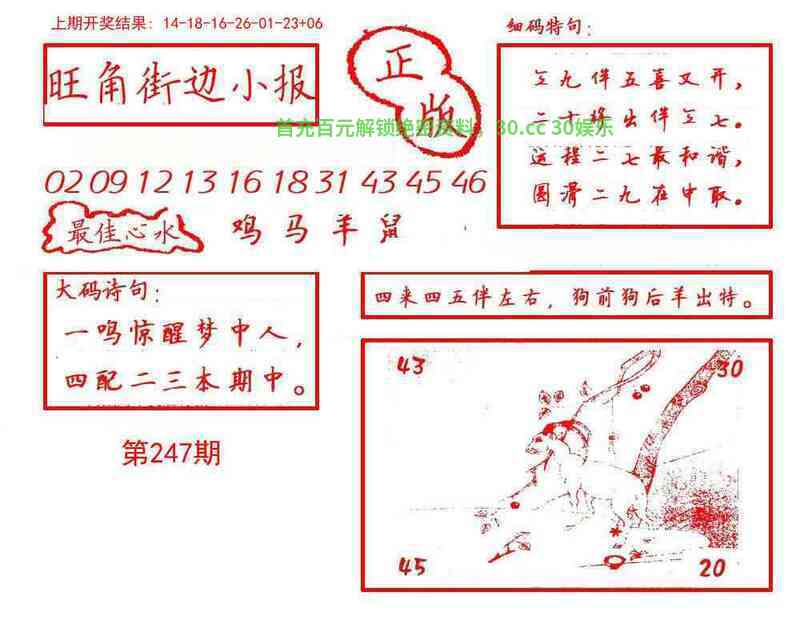 上期开奖结果：14-18-16-26-01-23+06
旺角街边小报
正版
细码特句：
五九伴五喜又开，
二十缘出伴五七。
运程二七最和谐，
圆滑二九在中取。
首充百元解锁绝密资料：30.cc 30娱乐
02 09 12 13 16 18 31 43 45 46
最佳心水
鸡马羊鼠
大码诗句：
一鸣惊醒梦中人，
四配二三本期中。
四来四五伴左右，狗前狗后羊出特。
第247期
43
30
45
20